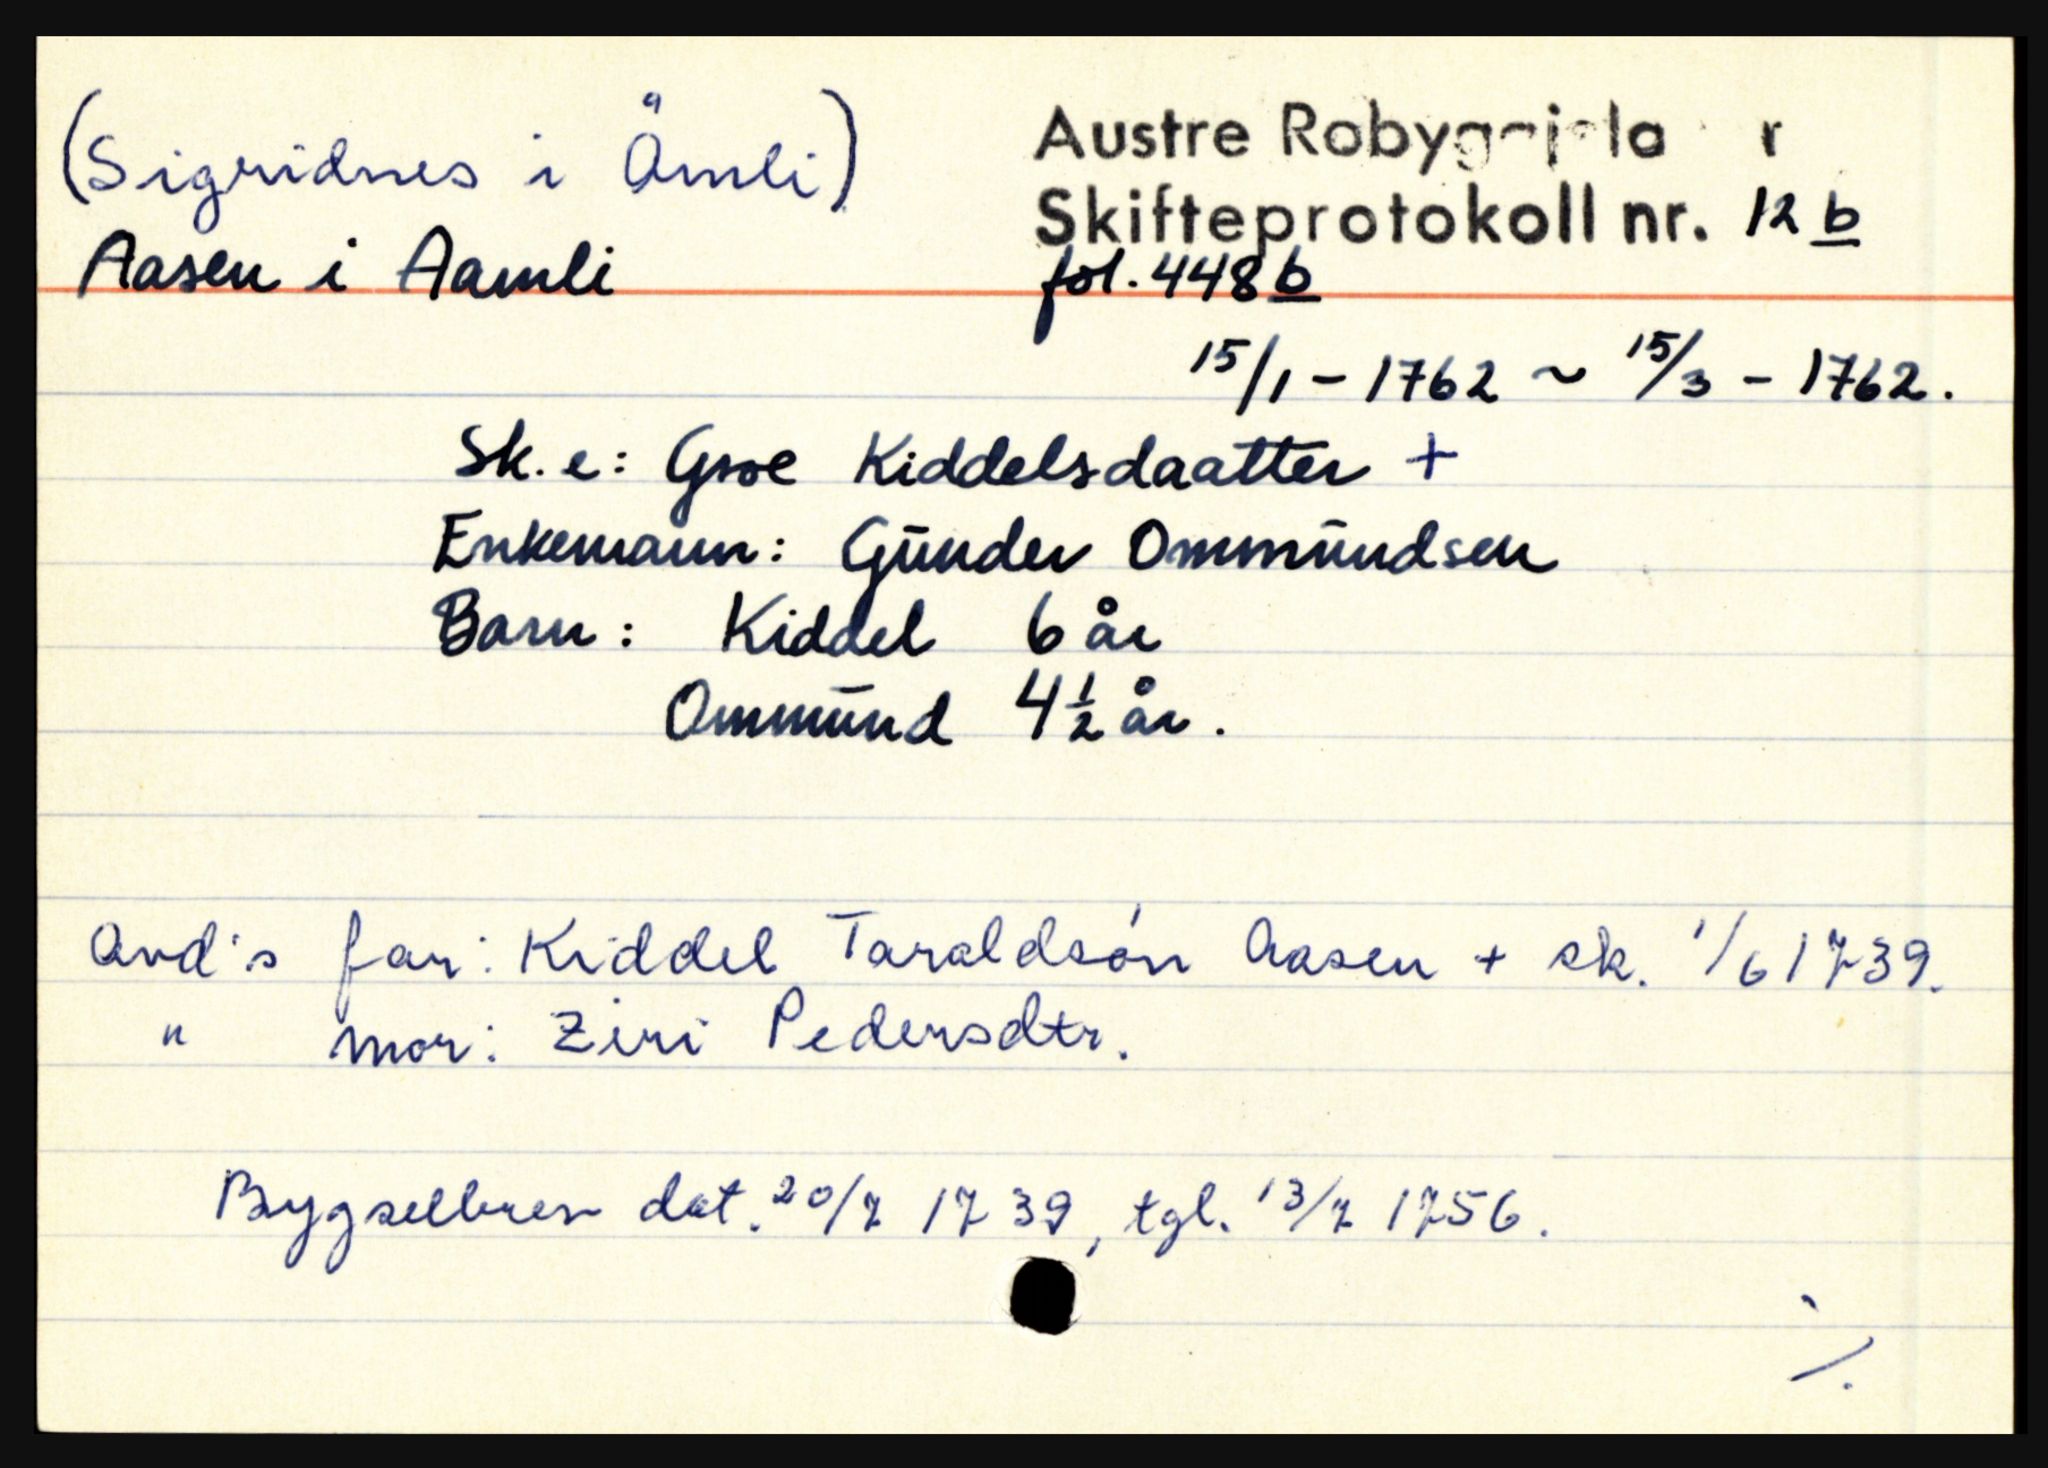 (Sigridnes i Åmli)
Austre Robyg
Skifteprotokoll nr. 12 b
Aasen i Aamli
fol. 448 b
15/1 - 1762 ~ 15/3 - 1762.
Sk. e: Groe Kiddelsdaatter +
Enkemann: Gūnder Ommūndsen
Barn: Kiddel 6 år
Ommūnd 4 1/2 år.
Avd's far: Kiddel Taraldsón Aasen + sk. 1/6 1739.
" mor: Ziri Pedersdtr.
Bygselbrev dat. 20/7 1739, tgl. 13/7 1756.